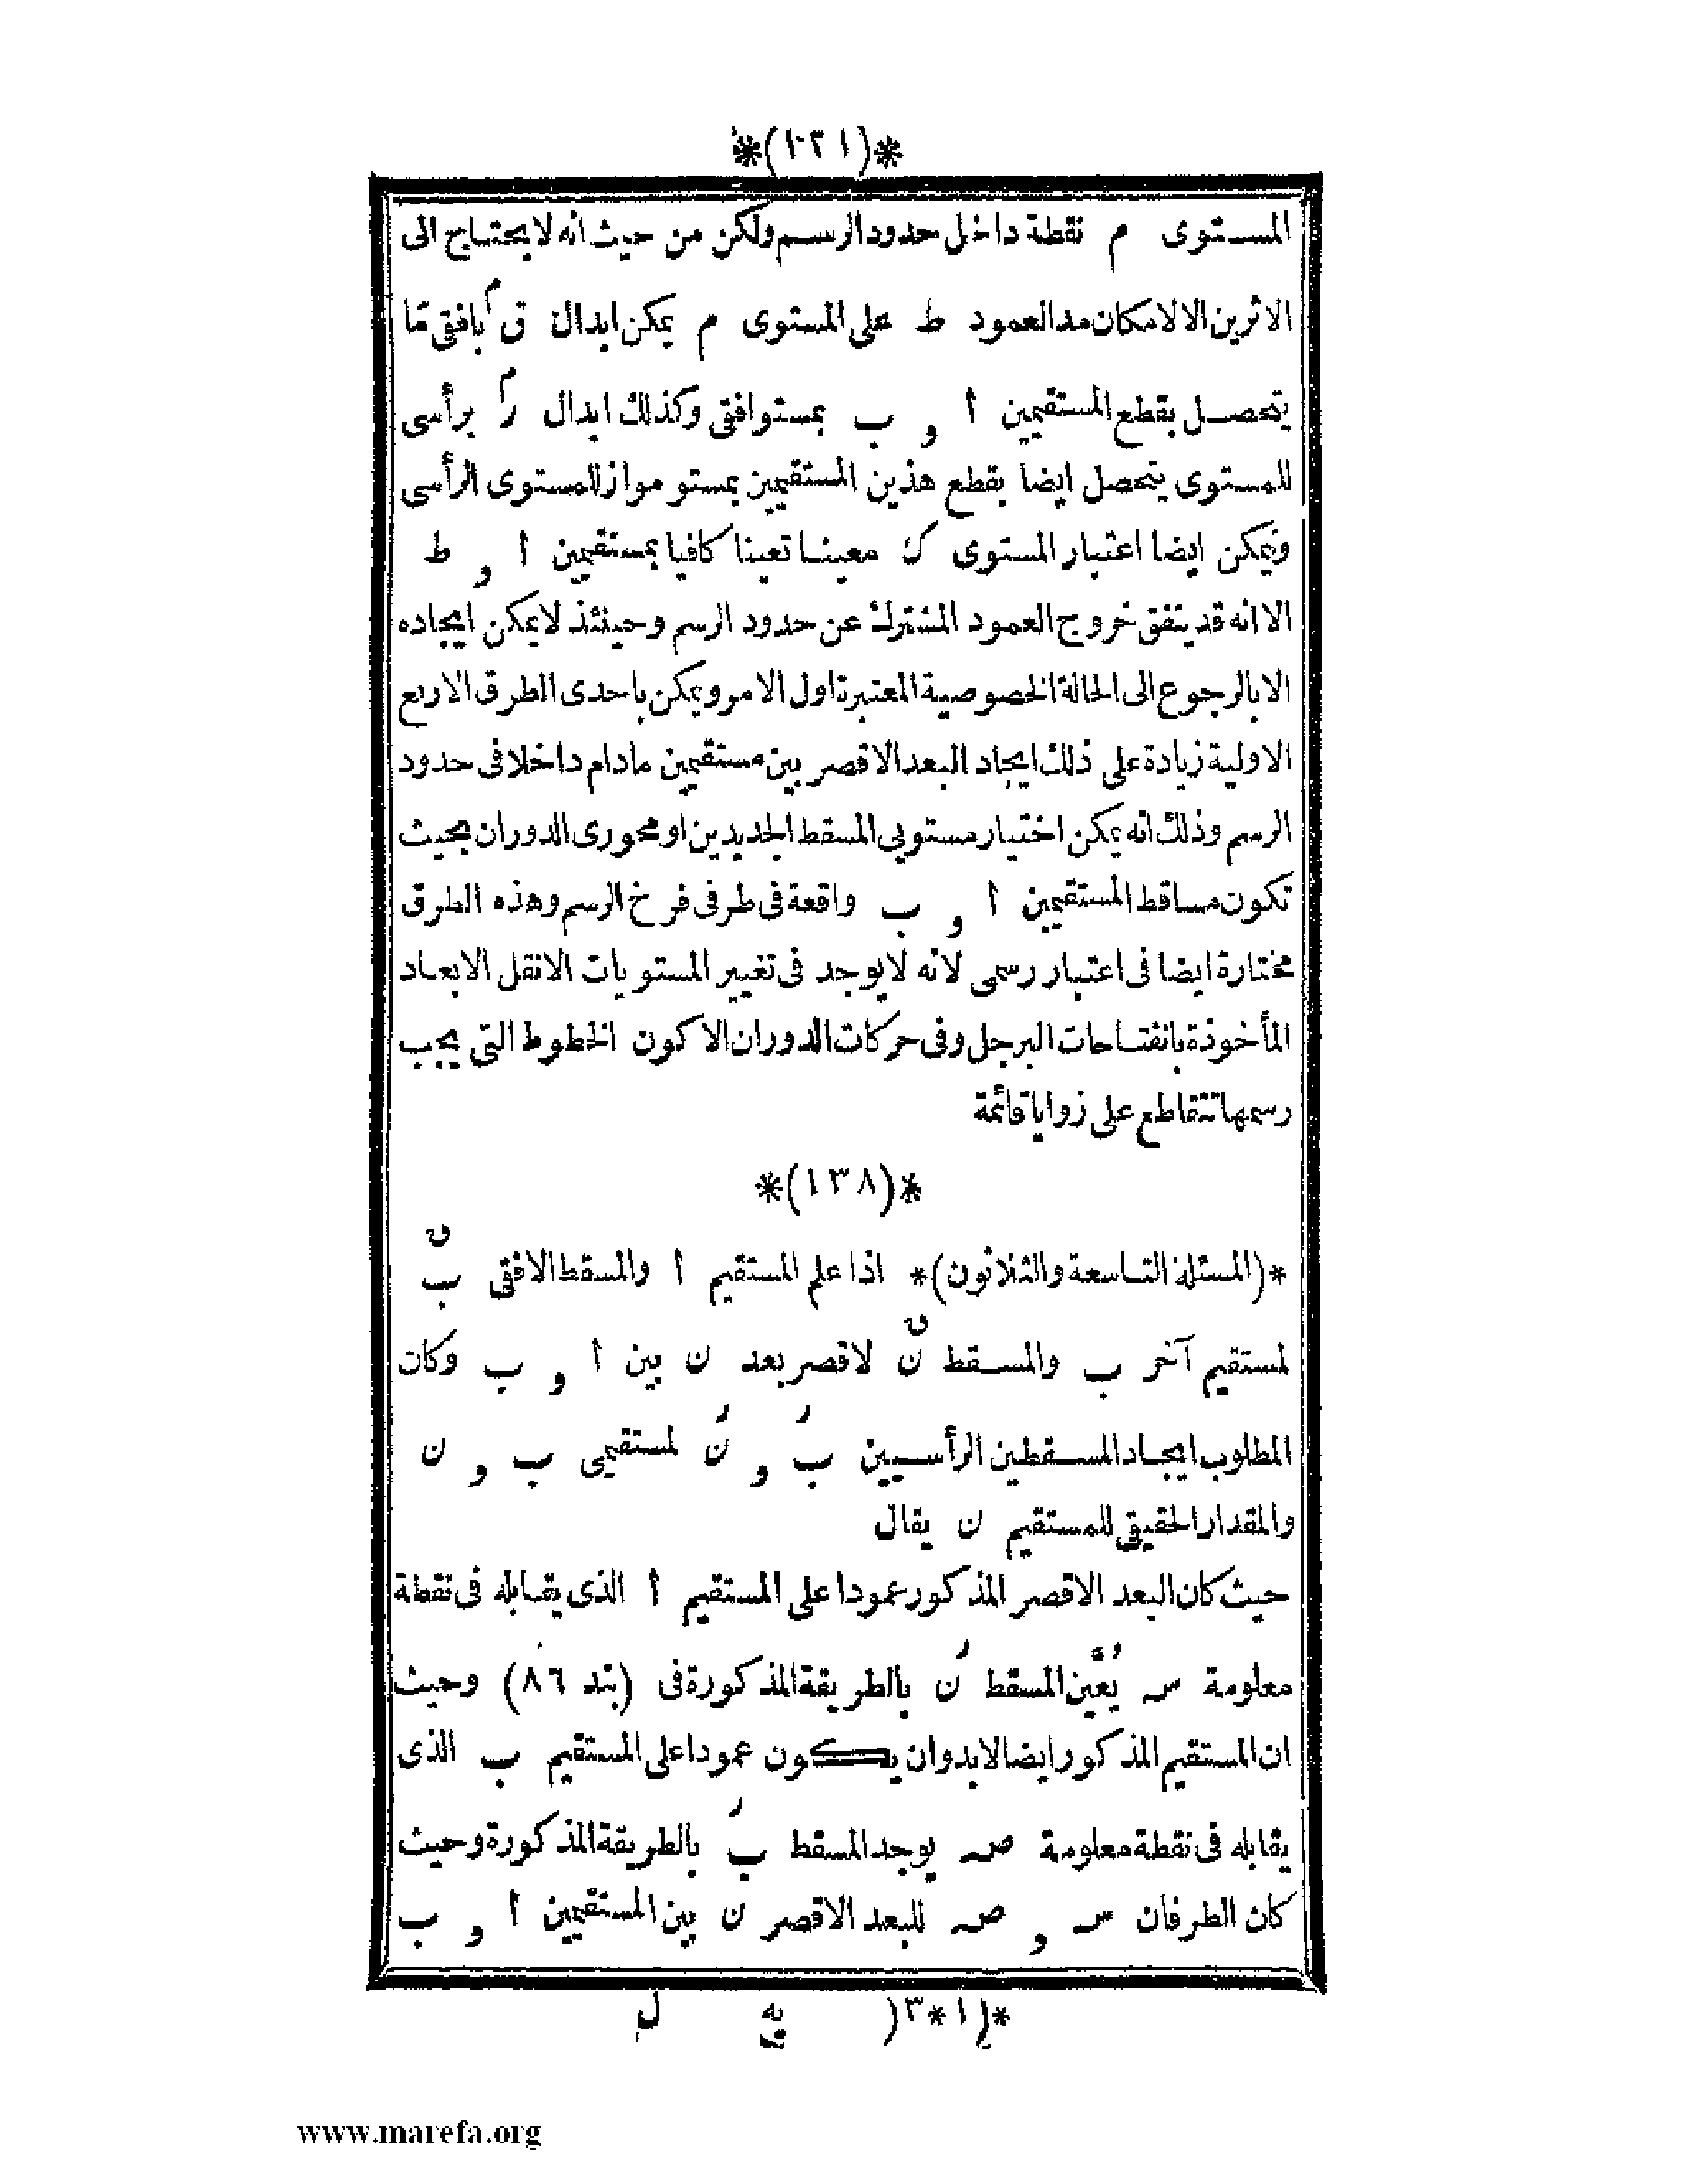 *(١٢١)*
المستوى م نقطة داخل حدود الرسم ولكن من حيث انه لا يحتاج الى
الاثرين الالامكان مد العمود ط على المستوى م يمكن ابدال ق بافقى مّا
يتحصل بقطع المستقيمين أ و ب بمستوافقى وكذلك ابدال ر برأسى
للمستوى يتحصل ايضا بقطع هذين المستقيمين بمستو مواز للمستوى الرأسى
ويمكن ايضا اعتبار المستوى ك معينا تعينا كافيا بمستقيمين أ و ط
الا انه قد يتفق خروج العمود المشترك عن حدود الرسم وحينئذ لا يمكن ايجاده
الا بالرجوع الى الحالة الخصوصية المعتبرة اول الامر ويمكن باحدى الطرق الاربع
الاولية زيادة على ذلك ايجاد البعد الاقصر بين مستقيمين مادام داخلا فى حدود
الرسم وذلك انه يمكن اختيار مستويى المسقط الجديدين او محورى الدوران بحيث
تكون مساقط المستقيمين أ و ب واقعة فى طرفى فرخ الرسم وهذه الطرق
مختارة ايضا فى اعتبار رسمى لانه لا يوجد فى تغيير المستويات الانقل الابعاد
المأخوذة بانفتاحات البرجل وفى حركات الدوران الا كون الخطوط التى يجب
رسمها تتقاطع على زوايا قائمة
*(١٣٨)*
*(المسئلة التاسعة والثلاثون)* اذا علم المستقيم أ والمسقط الافقى بَ
لمستقيم آخر ب والمسقط نَ لاقصر بعد ن بين أ و ب وكان
المطلوب ايجاد المسقطين الرأسيين بَ و نَ لمستقيمى ب و ن
والمقدار الحقيقى للمستقيم ن يقال
حيث كان البعد الاقصر المذكور عمودا على المستقيم أ الذى يقابله فى نقطة
معلومة سـ يُعَّين المسقط نَ بالطريقة المذكورة فى (بند ٨٦) وحيث
ان المستقيم المذكور ايضا لابد وان يكون عمودا على المستقيم ب الذى
يقابله فى نقطة معلومة صـ يوجد المسقط بَ بالطريقة المذكورة وحيث
كان الطرفان سـ و صـ للبعد الاقصر ن بين المستقيمين أ و ب
*(١*٣( يه ل
www.marefa.org